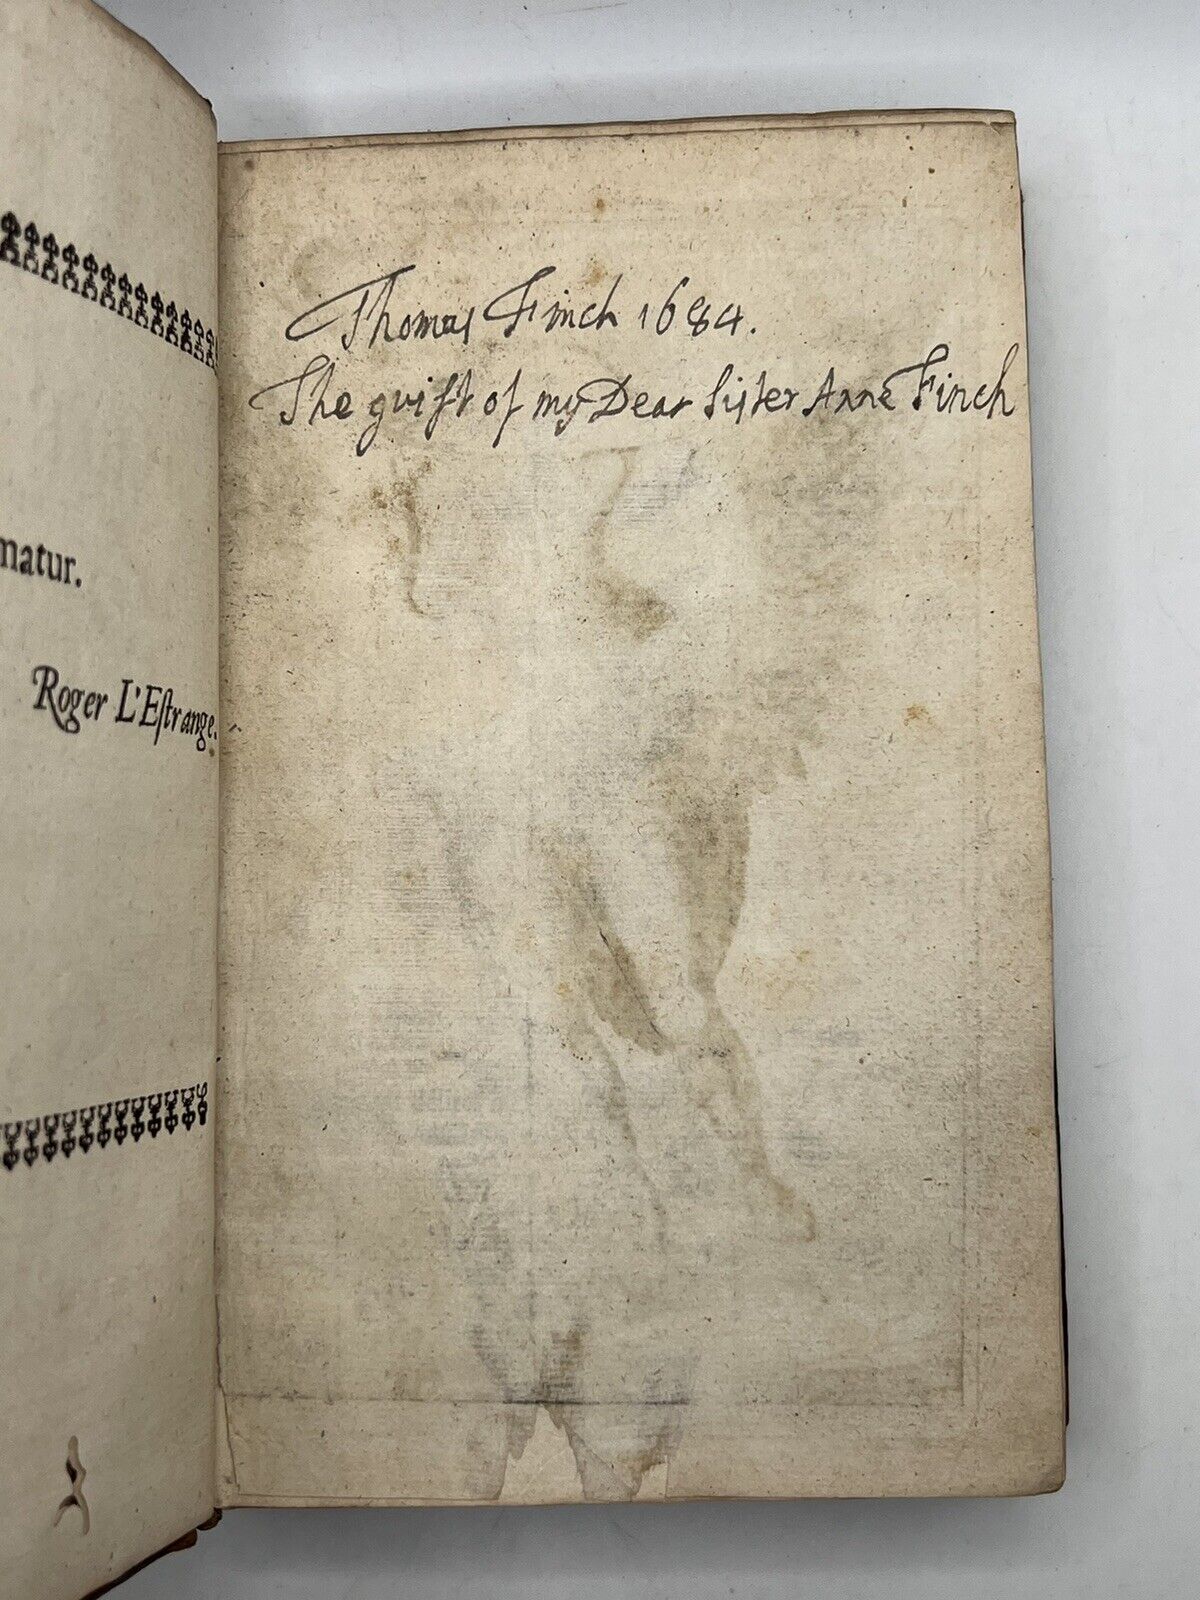 matur.
Roger L'Eſtrange.
Thomas Finch 1684.
The guift of my Dear Sister Anne Finch